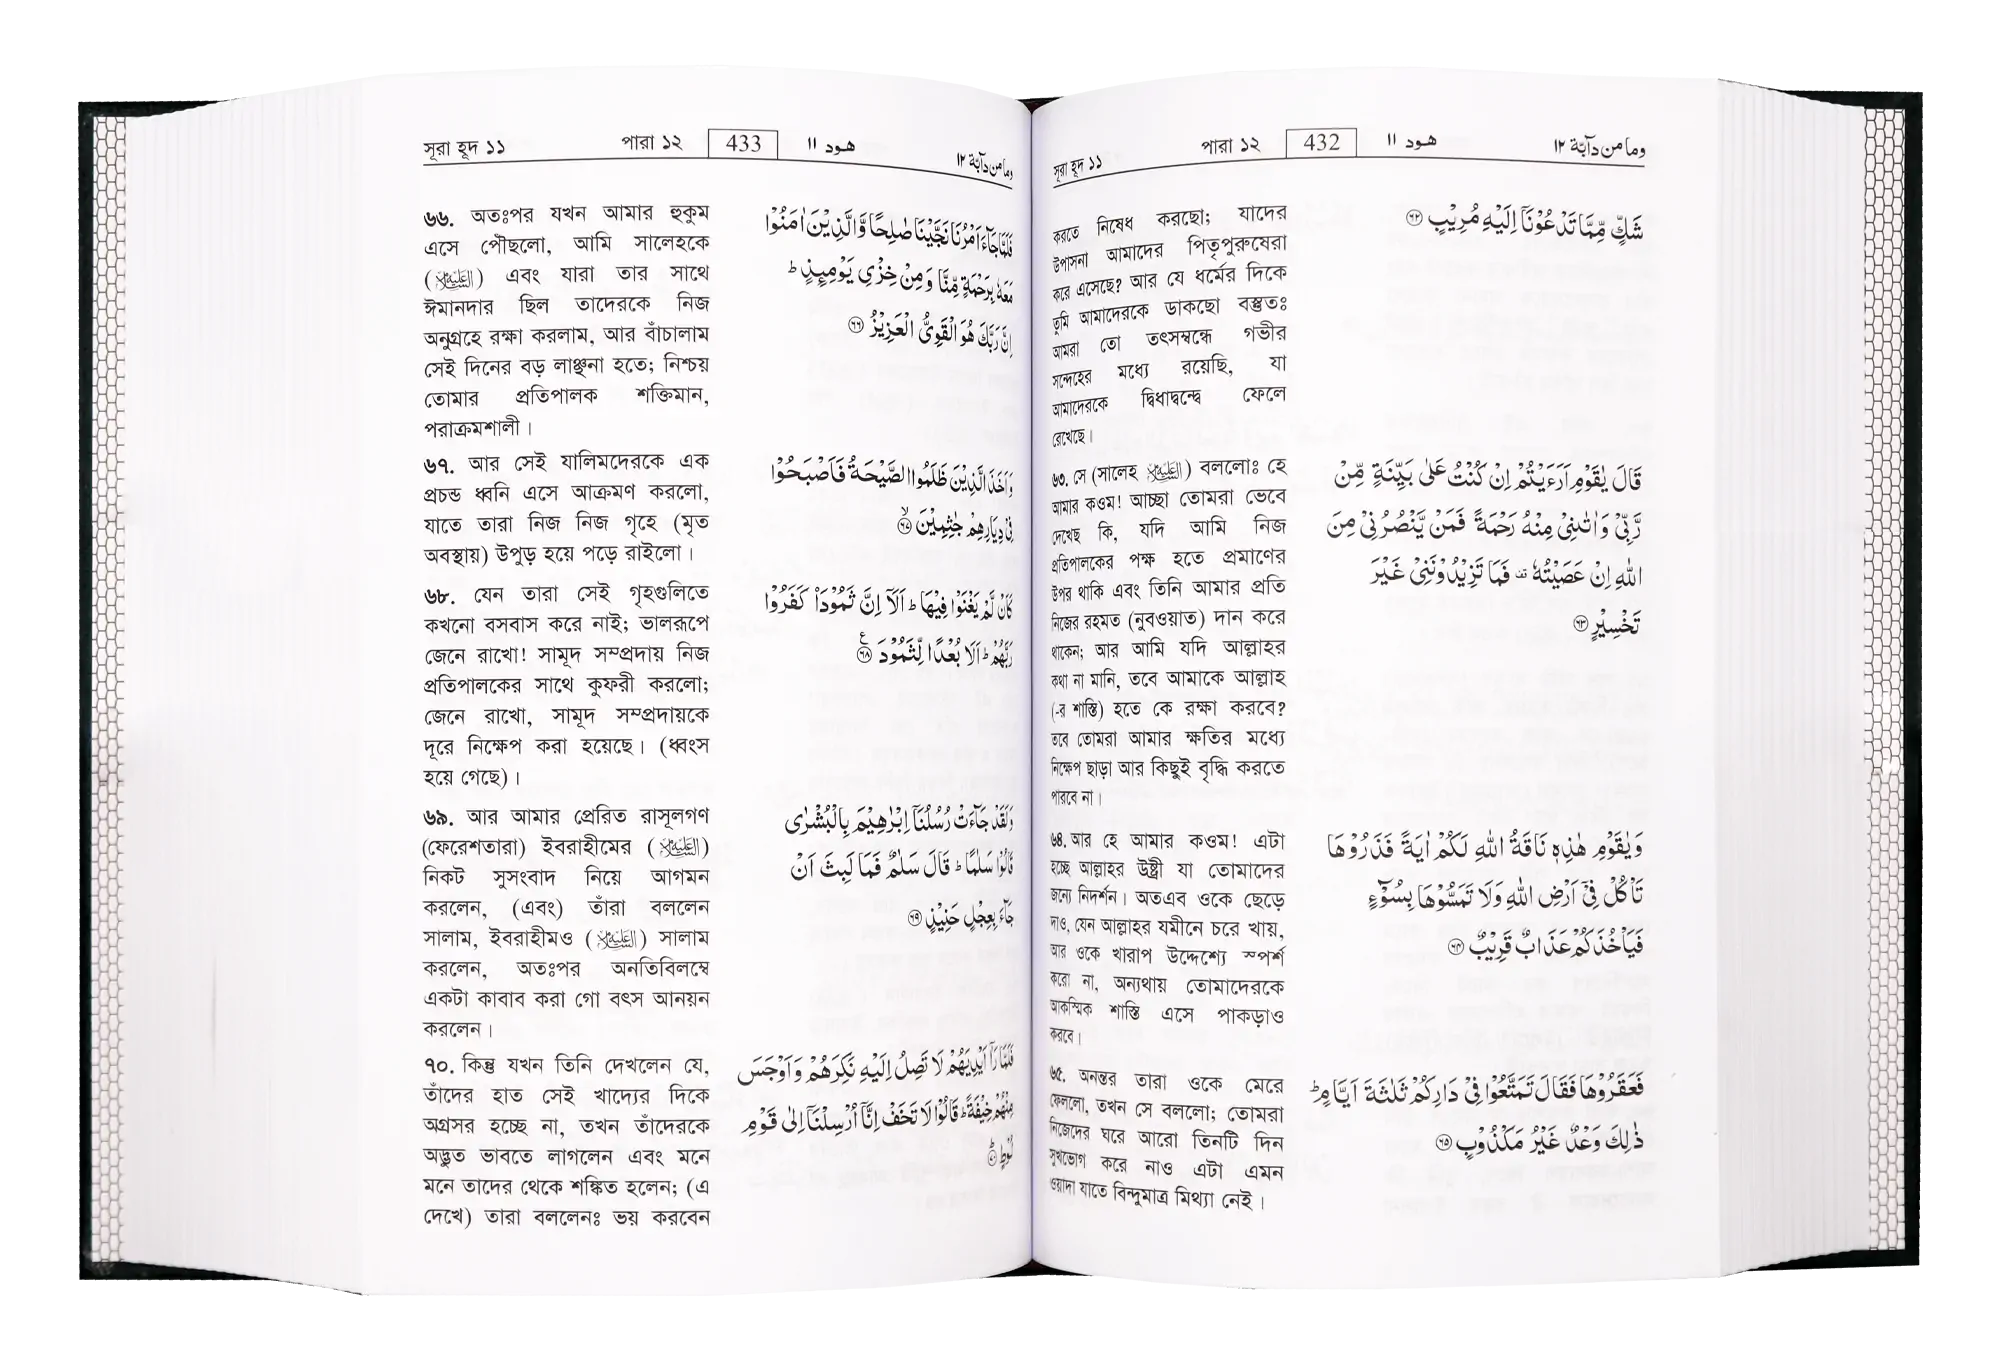 وما من دآبّة ١٢
هود ١١
432
পারা ১২
সূরা হূদ ১১
شَكٍّ مِّمَّا تَدْعُوْنَاۤ اِلَيْهِ مُرِيْبٍ ﴿٦٢﴾
করতে নিষেধ করছো; যাদের
উপাসনা আমাদের পিতৃপুরুষেরা
করে এসেছে? আর যে ধর্মের দিকে
তুমি আমাদেরকে ডাকছো বস্তুতঃ
আমরা তো তৎসম্বন্ধে গভীর
সন্দেহের মধ্যে রয়েছি, যা
আমাদেরকে দ্বিধাদ্বন্দ্বে ফেলে
রেখেছে।
قَالَ يٰقَوْمِ اَرَءَيْتُمْ اِنْ كُنْتُ عَلٰى بَيِّنَةٍ مِّنْ
رَّبِّيْ وَاٰتٰىنِيْ مِنْهُ رَحْمَةً فَمَنْ يَّنْصُرُنِيْ مِنَ
اللّٰهِ اِنْ عَصَيْتُهٗ ۫ فَمَا تَزِيْدُوْنَنِيْ غَيْرَ
تَخْسِيْرٍ ﴿٦٣﴾
৬৩. সে (সালেহ عليه السلام) বললোঃ হে
আমার কওম! আচ্ছা তোমরা ভেবে
দেখেছ কি, যদি আমি নিজ
প্রতিপালকের পক্ষ হতে প্রমাণের
উপর থাকি এবং তিনি আমার প্রতি
নিজের রহমত (নুবওয়াত) দান করে
থাকেন; আর আমি যদি আল্লাহর
কথা না মানি, তবে আমাকে আল্লাহ
(-র শাস্তি) হতে কে রক্ষা করবে?
তবে তোমরা আমার ক্ষতির মধ্যে
নিক্ষেপ ছাড়া আর কিছুই বৃদ্ধি করতে
পারবে না।
وَيٰقَوْمِ هٰذِهٖ نَاقَةُ اللّٰهِ لَكُمْ اٰيَةً فَذَرُوْهَا
تَاْكُلْ فِيْۤ اَرْضِ اللّٰهِ وَلَا تَمَسُّوْهَا بِسُوْٓءٍ
فَيَاْخُذَكُمْ عَذَابٌ قَرِيْبٌ ﴿٦٤﴾
৬৪. আর হে আমার কওম! এটা
হচ্ছে আল্লাহর উষ্ট্রী যা তোমাদের
জন্যে নিদর্শন। অতএব ওকে ছেড়ে
দাও, যেন আল্লাহর যমীনে চরে খায়,
আর ওকে খারাপ উদ্দেশ্যে স্পর্শ
করো না, অন্যথায় তোমাদেরকে
আকস্মিক শাস্তি এসে পাকড়াও
করবে।
فَعَقَرُوْهَا فَقَالَ تَمَتَّعُوْا فِيْ دَارِكُمْ ثَلٰثَةَ اَيَّامٍ ؕ
ذٰلِكَ وَعْدٌ غَيْرُ مَكْذُوْبٍ ﴿٦٥﴾
৬৫. অনন্তর তারা ওকে মেরে
ফেললো, তখন সে বললো; তোমরা
নিজেদের ঘরে আরো তিনটি দিন
সুখভোগ করে নাও এটা এমন
ওয়াদা যাতে বিন্দুমাত্র মিথ্যা নেই।
وما من دآبّة ١٢
هود ١١
433
পারা ১২
সূরা হূদ ১১
فَلَمَّا جَآءَ اَمْرُنَا نَجَّيْنَا صٰلِحًا وَّالَّذِيْنَ اٰمَنُوْا
مَعَهٗ بِرَحْمَةٍ مِّنَّا وَمِنْ خِزْيِ يَوْمِىِٕذٍ ؕ
اِنَّ رَبَّكَ هُوَ الْقَوِيُّ الْعَزِيْزُ ﴿٦٦﴾
৬৬. অতঃপর যখন আমার হুকুম
এসে পৌঁছলো, আমি সালেহকে
(عليه السلام) এবং যারা তার সাথে
ঈমানদার ছিল তাদেরকে নিজ
অনুগ্রহে রক্ষা করলাম, আর বাঁচালাম
সেই দিনের বড় লাঞ্ছনা হতে; নিশ্চয়
তোমার প্রতিপালক শক্তিমান,
পরাক্রমশালী।
وَاَخَذَ الَّذِيْنَ ظَلَمُوا الصَّيْحَةُ فَاَصْبَحُوْا
فِيْ دِيَارِهِمْ جٰثِمِيْنَ ﴿٦٧﴾ ۙ
৬৭. আর সেই যালিমদেরকে এক
প্রচন্ড ধ্বনি এসে আক্রমণ করলো,
যাতে তারা নিজ নিজ গৃহে (মৃত
অবস্থায়) উপুড় হয়ে পড়ে রাইলো।
كَاَنْ لَّمْ يَغْنَوْا فِيْهَا ؕ اَلَاۤ اِنَّ ثَمُوْدَا۟ كَفَرُوْا
رَبَّهُمْ ؕ اَلَا بُعْدًا لِّثَمُوْدَ ﴿٦٨﴾ ع
৬৮. যেন তারা সেই গৃহগুলিতে
কখনো বসবাস করে নাই; ভালরূপে
জেনে রাখো! সামূদ সম্প্রদায় নিজ
প্রতিপালকের সাথে কুফরী করলো;
জেনে রাখো, সামূদ সম্প্রদায়কে
দূরে নিক্ষেপ করা হয়েছে। (ধ্বংস
হয়ে গেছে)।
وَلَقَدْ جَآءَتْ رُسُلُنَاۤ اِبْرٰهِيْمَ بِالْبُشْرٰى
قَالُوْا سَلٰمًا ؕ قَالَ سَلٰمٌ فَمَا لَبِثَ اَنْ
جَآءَ بِعِجْلٍ حَنِيْذٍ ﴿٦٩﴾
৬৯. আর আমার প্রেরিত রাসূলগণ
(ফেরেশতারা) ইবরাহীমের (عليه السلام)
নিকট সুসংবাদ নিয়ে আগমন
করলেন, (এবং) তাঁরা বললেন
সালাম, ইবরাহীমও (عليه السلام) সালাম
করলেন, অতঃপর অনতিবিলম্বে
একটা কাবাব করা গো বৎস আনয়ন
করলেন।
فَلَمَّا رَاٰۤ اَيْدِيَهُمْ لَا تَصِلُ اِلَيْهِ نَكِرَهُمْ وَاَوْجَسَ
مِنْهُمْ خِيْفَةً ؕ قَالُوْا لَا تَخَفْ اِنَّاۤ اُرْسِلْنَاۤ اِلٰى قَوْمِ
لُوْطٍ ؕ ﴿٧٠﴾
৭০. কিন্তু যখন তিনি দেখলেন যে,
তাঁদের হাত সেই খাদ্যের দিকে
অগ্রসর হচ্ছে না, তখন তাঁদেরকে
অদ্ভুত ভাবতে লাগলেন এবং মনে
মনে তাদের থেকে শঙ্কিত হলেন; (এ
দেখে) তারা বললেনঃ ভয় করবেন